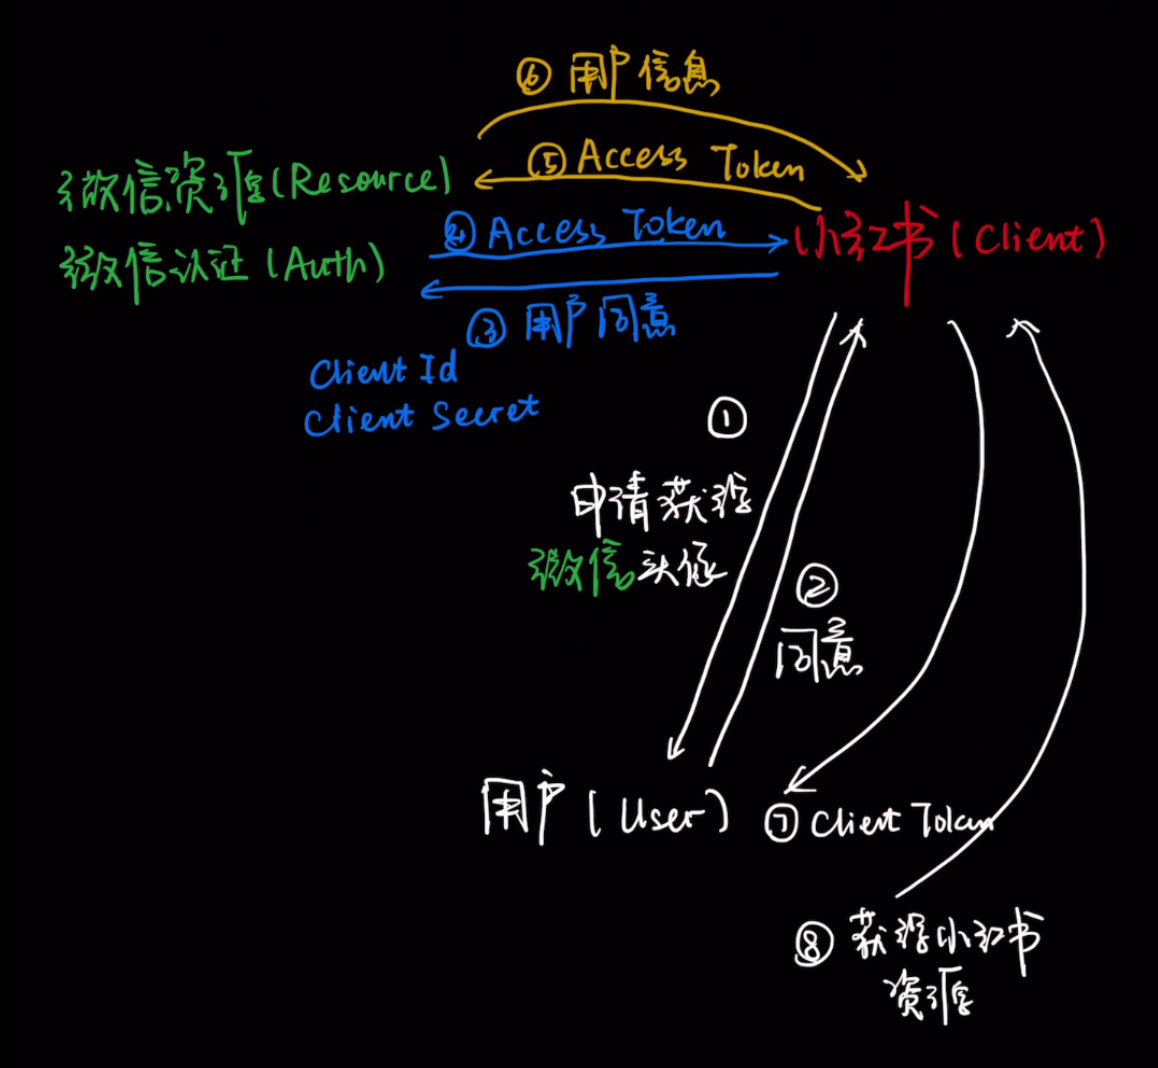 ⑥ 用户信息
⑤ Access Token
微信资源(Resource)
④ Access Token
小红书(Client)
微信认证(Auth)
③ 用户同意
Client Id
Client Secret
①
申请获得
微信头像
②
同意
用户(User)
⑦ Client Token
⑧ 获得小红书
资源